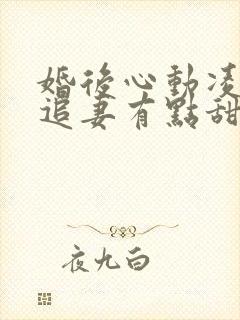 婚後心動凌
追妻有點甜
夜九白